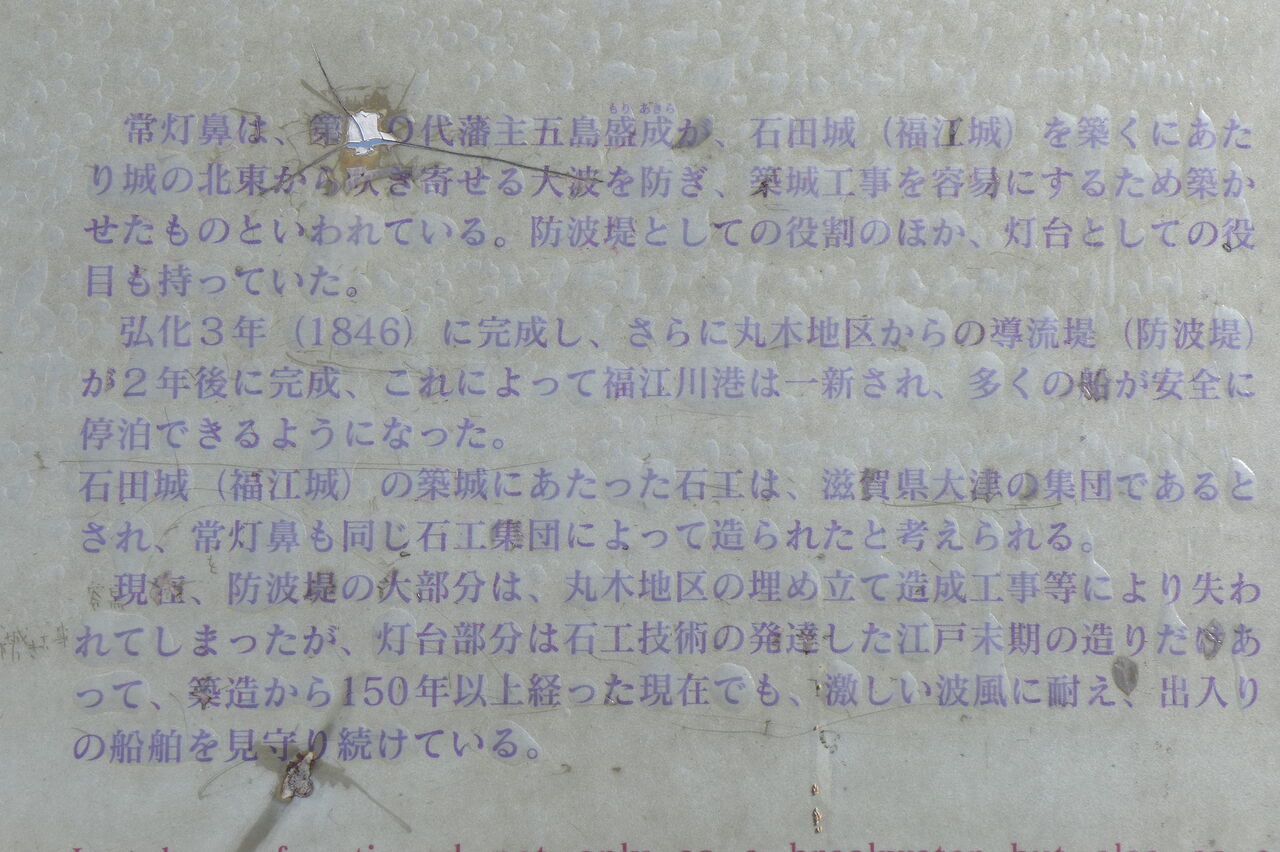 もり あきら
常灯鼻は、第０代藩主五島盛成が、石田城（福江城）を築くにあた
り城の北東から吹き寄せる大波を防ぎ、築城工事を容易にするため築か
せたものといわれている。防波堤としての役割のほか、灯台としての役
目も持っていた。
弘化３年（1846）に完成し、さらに丸木地区からの導流堤（防波堤）
が２年後に完成、これによって福江川港は一新され、多くの船が安全に
停泊できるようになった。
石田城（福江城）の築城にあたった石工は、滋賀県大津の集団であると
され、常灯鼻も同じ石工集団によって造られたと考えられる。
現在、防波堤の大部分は、丸木地区の埋め立て造成工事等により失わ
れてしまったが、灯台部分は石工技術の発達した江戸末期の造りだけあ
って、築造から150年以上経った現在でも、激しい波風に耐え、出入り
の船舶を見守り続けている。
not only as a breakwater but also as a